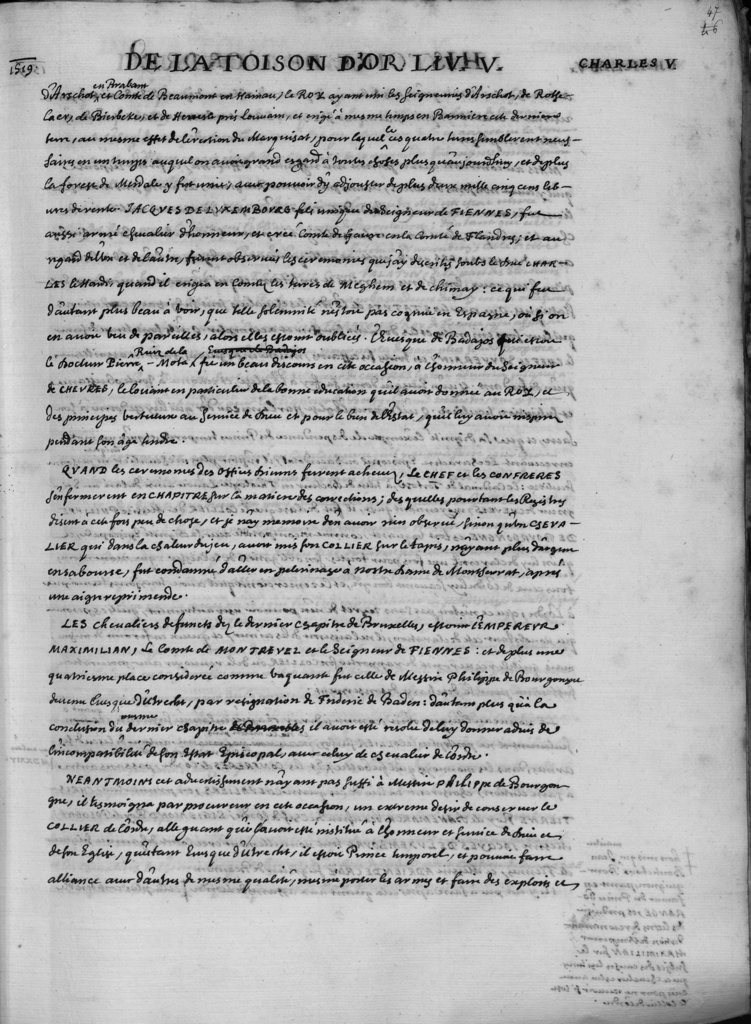 47
46
1519.
DE LA TOISON D'OR LIV. V.
CHARLES V.
en Brabant
d'Arschot, et Comte de Beaumont en Hainau; le ROY ayant uni les seigneuries d'Arschot, de Rotse-
laer, de Bierbeke, et de Heverle près Louvain, et erigé à mesme temps en Banniere cete derniere
terre, au mesme effet de l'erection du Marquisat, pour lequel ces quatre terres sembloient neces-
saires en un temps auquel on avoit grand esgard à toutes choses plus qu'aujourdhuy, et de plus
la forest de Merdale y fut unie, avec pouvoir d'y adjouster de plus deux mille cinq cens li-
vres de rente. JACQUES DE LUXEMBOURG fils unique du Seigneur de FIENNES, fut
aussi armé chevalier d'honneur, et creé Comte de Gavre en la Comté de Flandres; et au
regard de l'un et de l'autre, furent observées les ceremonies que j'ay descrites soubs le Duc CHAR-
LES le Hardi, quand il erigea en Comtez les terres de Meghem et de Chimay: ce qui fut
d'autant plus beau à voir, que telle solemnité n'estoit pas cognue en Espagne, où si on
en avoit veu de pareilles, alors elles estoient oubliées. L'Evesque de Badajos qui estoit
le Docteur Pierre Ruiz de la Mota, fit un beau discours en cete occasion, à l'honneur du Seigneur
de CHEVRES, le louant en particulier de la bonne education qu'il avoit donnée au ROY, et
des principes vertueux au service de Dieu et pour le bien de l'Estat, qu'il luy avoit inspirez
pendant son âge tendre.
QUAND les ceremonies des Offices divins furent achevées, Le CHEF et les CONFRERES
s'enfermerent en CHAPITRE sur la matiere des corrections; desquelles pourtant les Registres
disent à cete fois peu de chose, et je n'ay memoire d'en avoir rien observé, sinon qu'un CHEVA-
LIER qui dans la chaleur du jeu, avoit mis son COLLIER sur le tapis, n'ayant plus d'argent
en sa bourse, fut condamné d'aller en pelerinage à Nostre Dame de Montserrat, après
une aigre reprimende.
LES chevaliers defuncts dez le dernier chapitre de Bruxelles, estoient l'EMPEREUR
MAXIMILIAN, Le Comte de MONTREVEL et le Seigneur de FIENNES: et de plus une
quatriesme place considerée comme vaquante fut celle de Messire Philippe de Bourgongne
devenu Evesque d'Utrecht, par resignation de Frideric de Baden: d'autant plus qu'à la
conclusion du mesme dernier chapitre il avoit esté resolu de luy donner advis de
l'incompatibilité de son Estat Episcopal, avec celuy de chevalier de l'Ordre.
NEANTMOINS cet advertissement n'ayant pas suffi à Messire PHILIPPE de Bourgon-
gne, il tesmoigna par procureur en cete occasion, un extreme desir de conserver le
COLLIER de l'Ordre, alleguant qu'il avoit esté institué à l'honneur et service de Dieu et
de son Eglise, qu'estant Evesque d'Utrecht, il estoit Prince temporel, et pouvoit faire
alliance avec d'autres de mesme qualité, mesme porter les armes et faire des exploits et